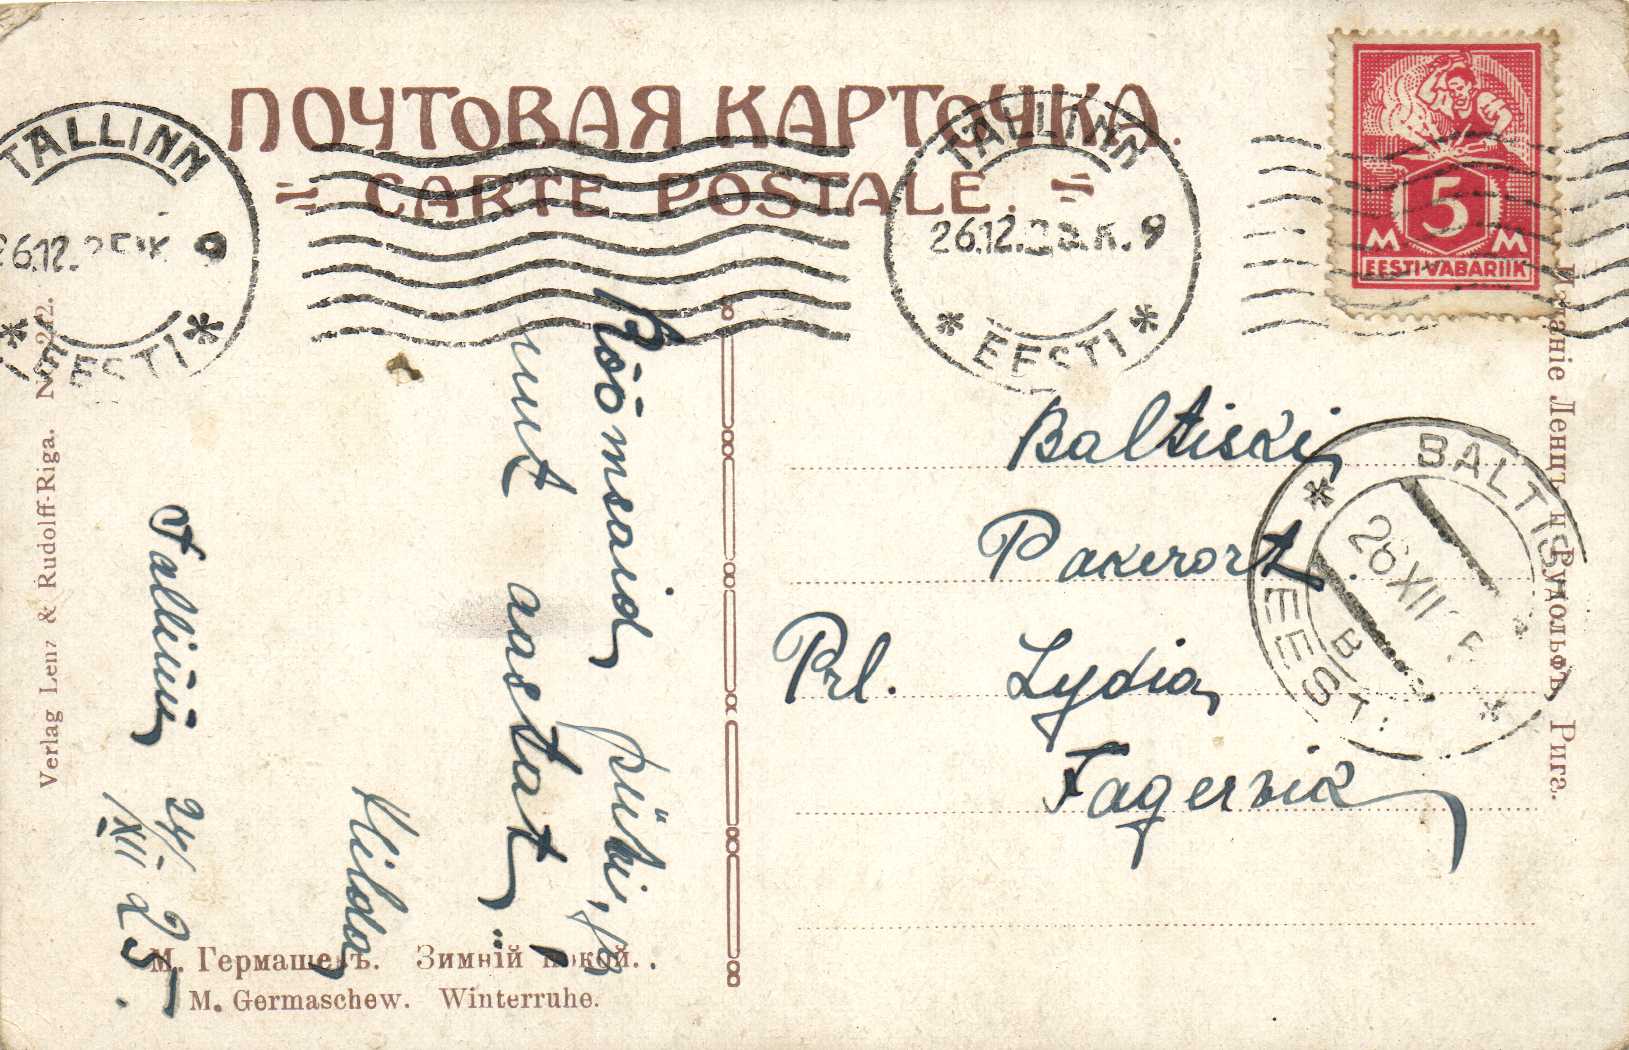 ПОЧТОВАЯ КАРТОЧКА.
CARTE POSTALE.
TALLINN
26.12.
EESTI
TALLINN
26.12. K. 9
EESTI
5
M M
EESTI VABARIIK
Rõõmsaid pühi,
uut aastat!
Hilda
Tallinn 24/XII 25.
Baltiski
Pakerort
Prl. Lydia
Fagervik
BALTISKI
26 XII
EESTI
Verlag Lenz & Rudolff-Riga. № 212.
Изданіе Ленцъ и Рудольфъ, Рига.
М. Гермашевъ. Зимній покой.
M. Germaschew. Winterruhe.